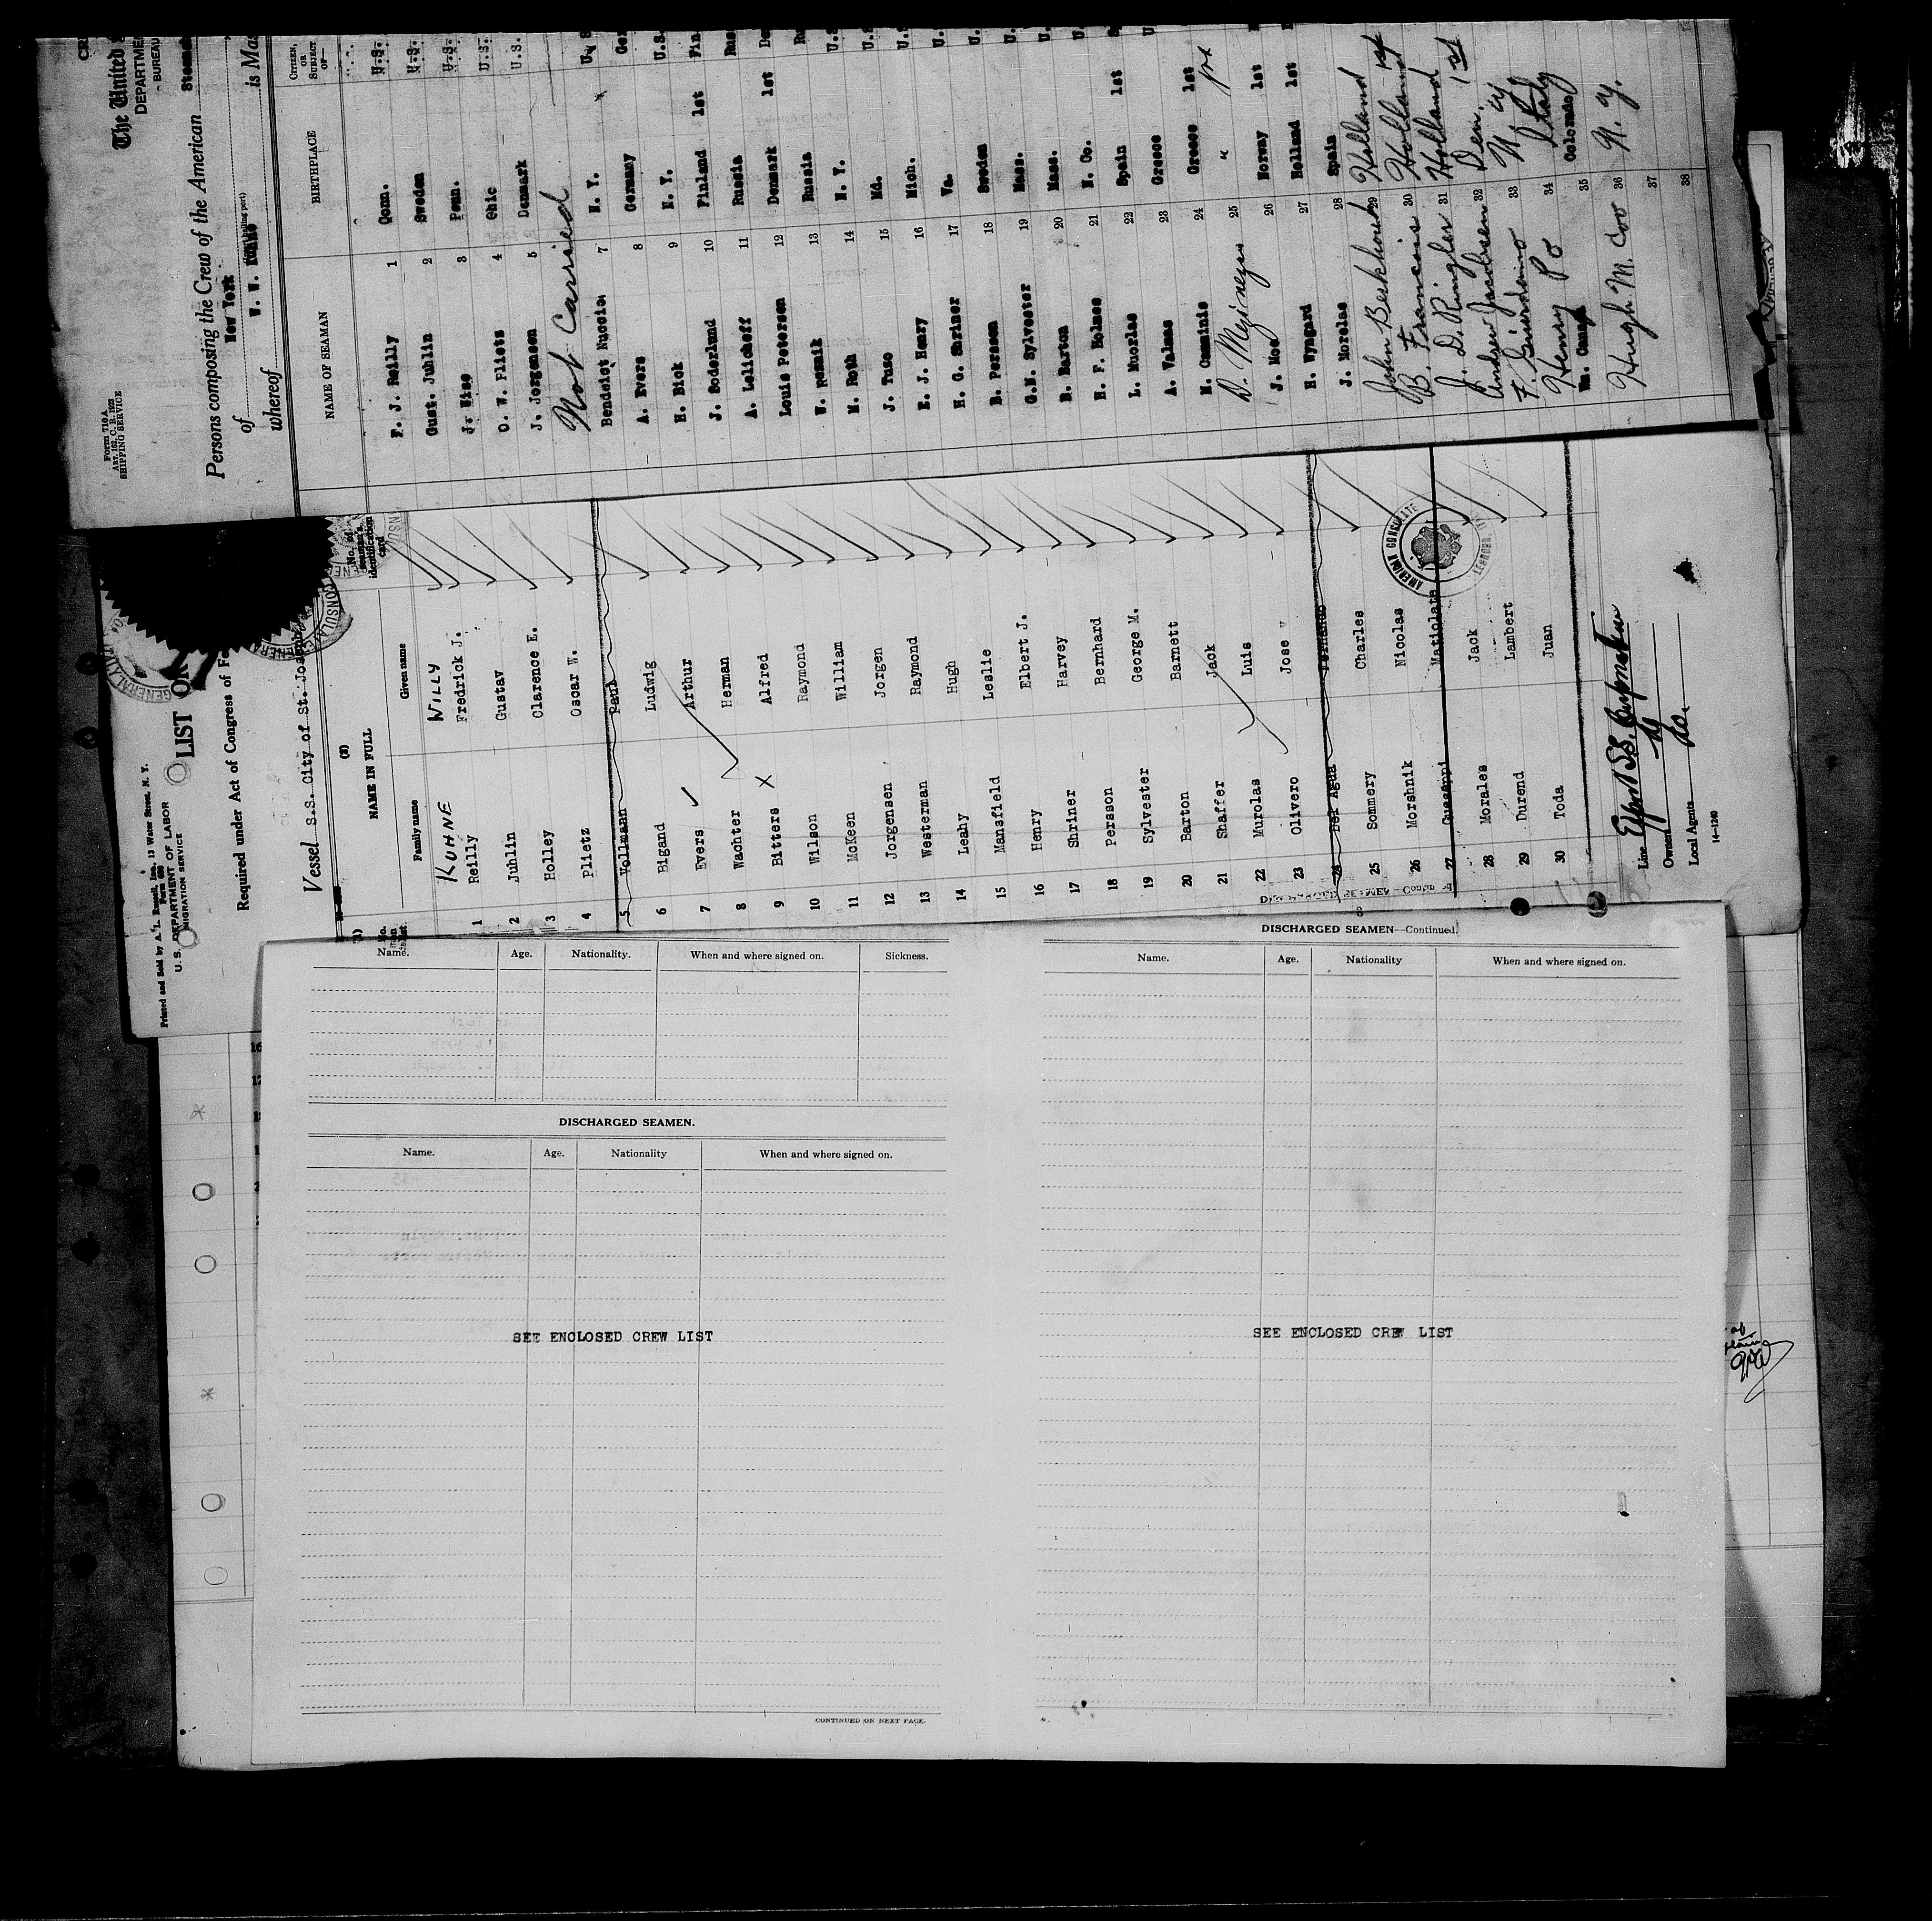 Form 710 A
ART. 162, C. R. 1922
SHIPPING SERVICE
The United
DEPARTME
BUREAU
Persons composing the Crew of the American Steam
of New York
whereof W. W. is Mas
NAME OF SEAMAN BIRTHPLACE CITIZEN, OR SUBJECT OF—
F. J. Reilly 1 Conn. U.S.
Gust. Juhlin 2 Sweden U.S.
J. Wise 3 Penn. U.S.
O. W. Plietz 4 Ohio U.S.
J. Jorgensen 5 Denmark U.S.
Not Carried
Bendeict Nuccio 7 N. Y. U. S
A. Evers 8 Germany Ger
H. Bick 9 N. Y. U.S.
J. Soderlund 10 Finland 1st Fin
A. Lelicheff 11 Russia Rus
Louis Petersen 12 Denmark 1st De
W. Resnik 13 Russia Ru
M. Roth 14 N. Y. U.S
J. Tuso 15 Md. U.S
E. J. Henry 16 Mich. U.
H. G. Shriner 17 Va. U.
B. Persson 18 Sweden U.
G.M. Sylvester 19 Mass. U.
B. Barton 20 Mass. U.
H. F. Holmes 21 N. Co. U
L. Muorlas 22 Spain 1st
A. Valmas 23 Greece U
M. Cumminis 24 Greece 1st
25 "
J. Moe 26 Norway 1st
H. Wyngard 27 Holland 1st
J. Morelas 28 Spain
John Berkhout 29 Holland
B. Francois 30 Holland 1st
J. D. Ringler 31 Holland
Andrew Jacobsen 32 Den. 1st
F. Giurdanno 33 N. Y
Henry Po 34 Italy
Wm. 35 Colorado
Hugh M. Coo 36 N. Y.
37
38
Printed and Sold by A. L. Russell, Inc., 13 Water Street, N. Y.
Form 680
U. S. DEPARTMENT OF LABOR
IMMIGRATION SERVICE
LIST O
Required under Act of Congress of Fe
Vessel S.S. City of St. Joseph
(2)
NAME IN FULL
Family name Given name
No. of seaman's identification card
KUHNE WILLY
1 Reilly Fredrick J.
2 Juhlin Gustav
3 Holley Clarence E.
4 Plietz Oscar W.
5 Vollmann Paul
6 Bigand Ludwig
7 Evers Arthur
8 Wachter Herman
9 Bitters Alfred
10 Wilson Raymond
11 McKeen William
12 Jorgensen Jorgen
13 Westerman Raymond
14 Leahy Hugh
15 Mansfield Leslie
16 Henry Elbert J.
17 Shriner Harvey
18 Persson Bernhard
19 Sylvester George M.
20 Barton Barnett
21 Shaffer Jack
22 Murolas Luis
23 Olivero Jose
24 Del Agua Fernando
25 Sommery Charles
26 Morshnik Nicolas
27 Guseppi Matiolata
28 Morales Jack
29 Durend Lambert
30 Toda Juan
AMERICAN CONSULATE
Line
Owners
Local Agents do.
14—1240
Name. Age. Nationality. When and where signed on. Sickness.
DISCHARGED SEAMEN.
Name. Age. Nationality When and where signed on.
SEE ENCLOSED CREW LIST
CONTINUED ON NEXT PAGE.
DISCHARGED SEAMEN—Continued.
Name. Age. Nationality When and where signed on.
SEE ENCLOSED CREW LIST